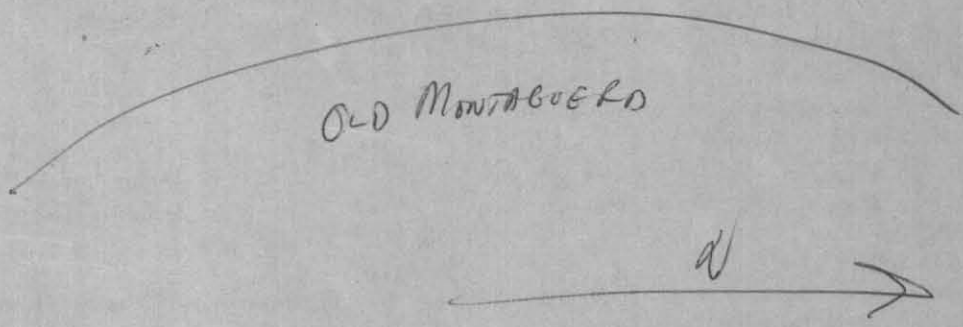 OLD MONTAGUE RD
N